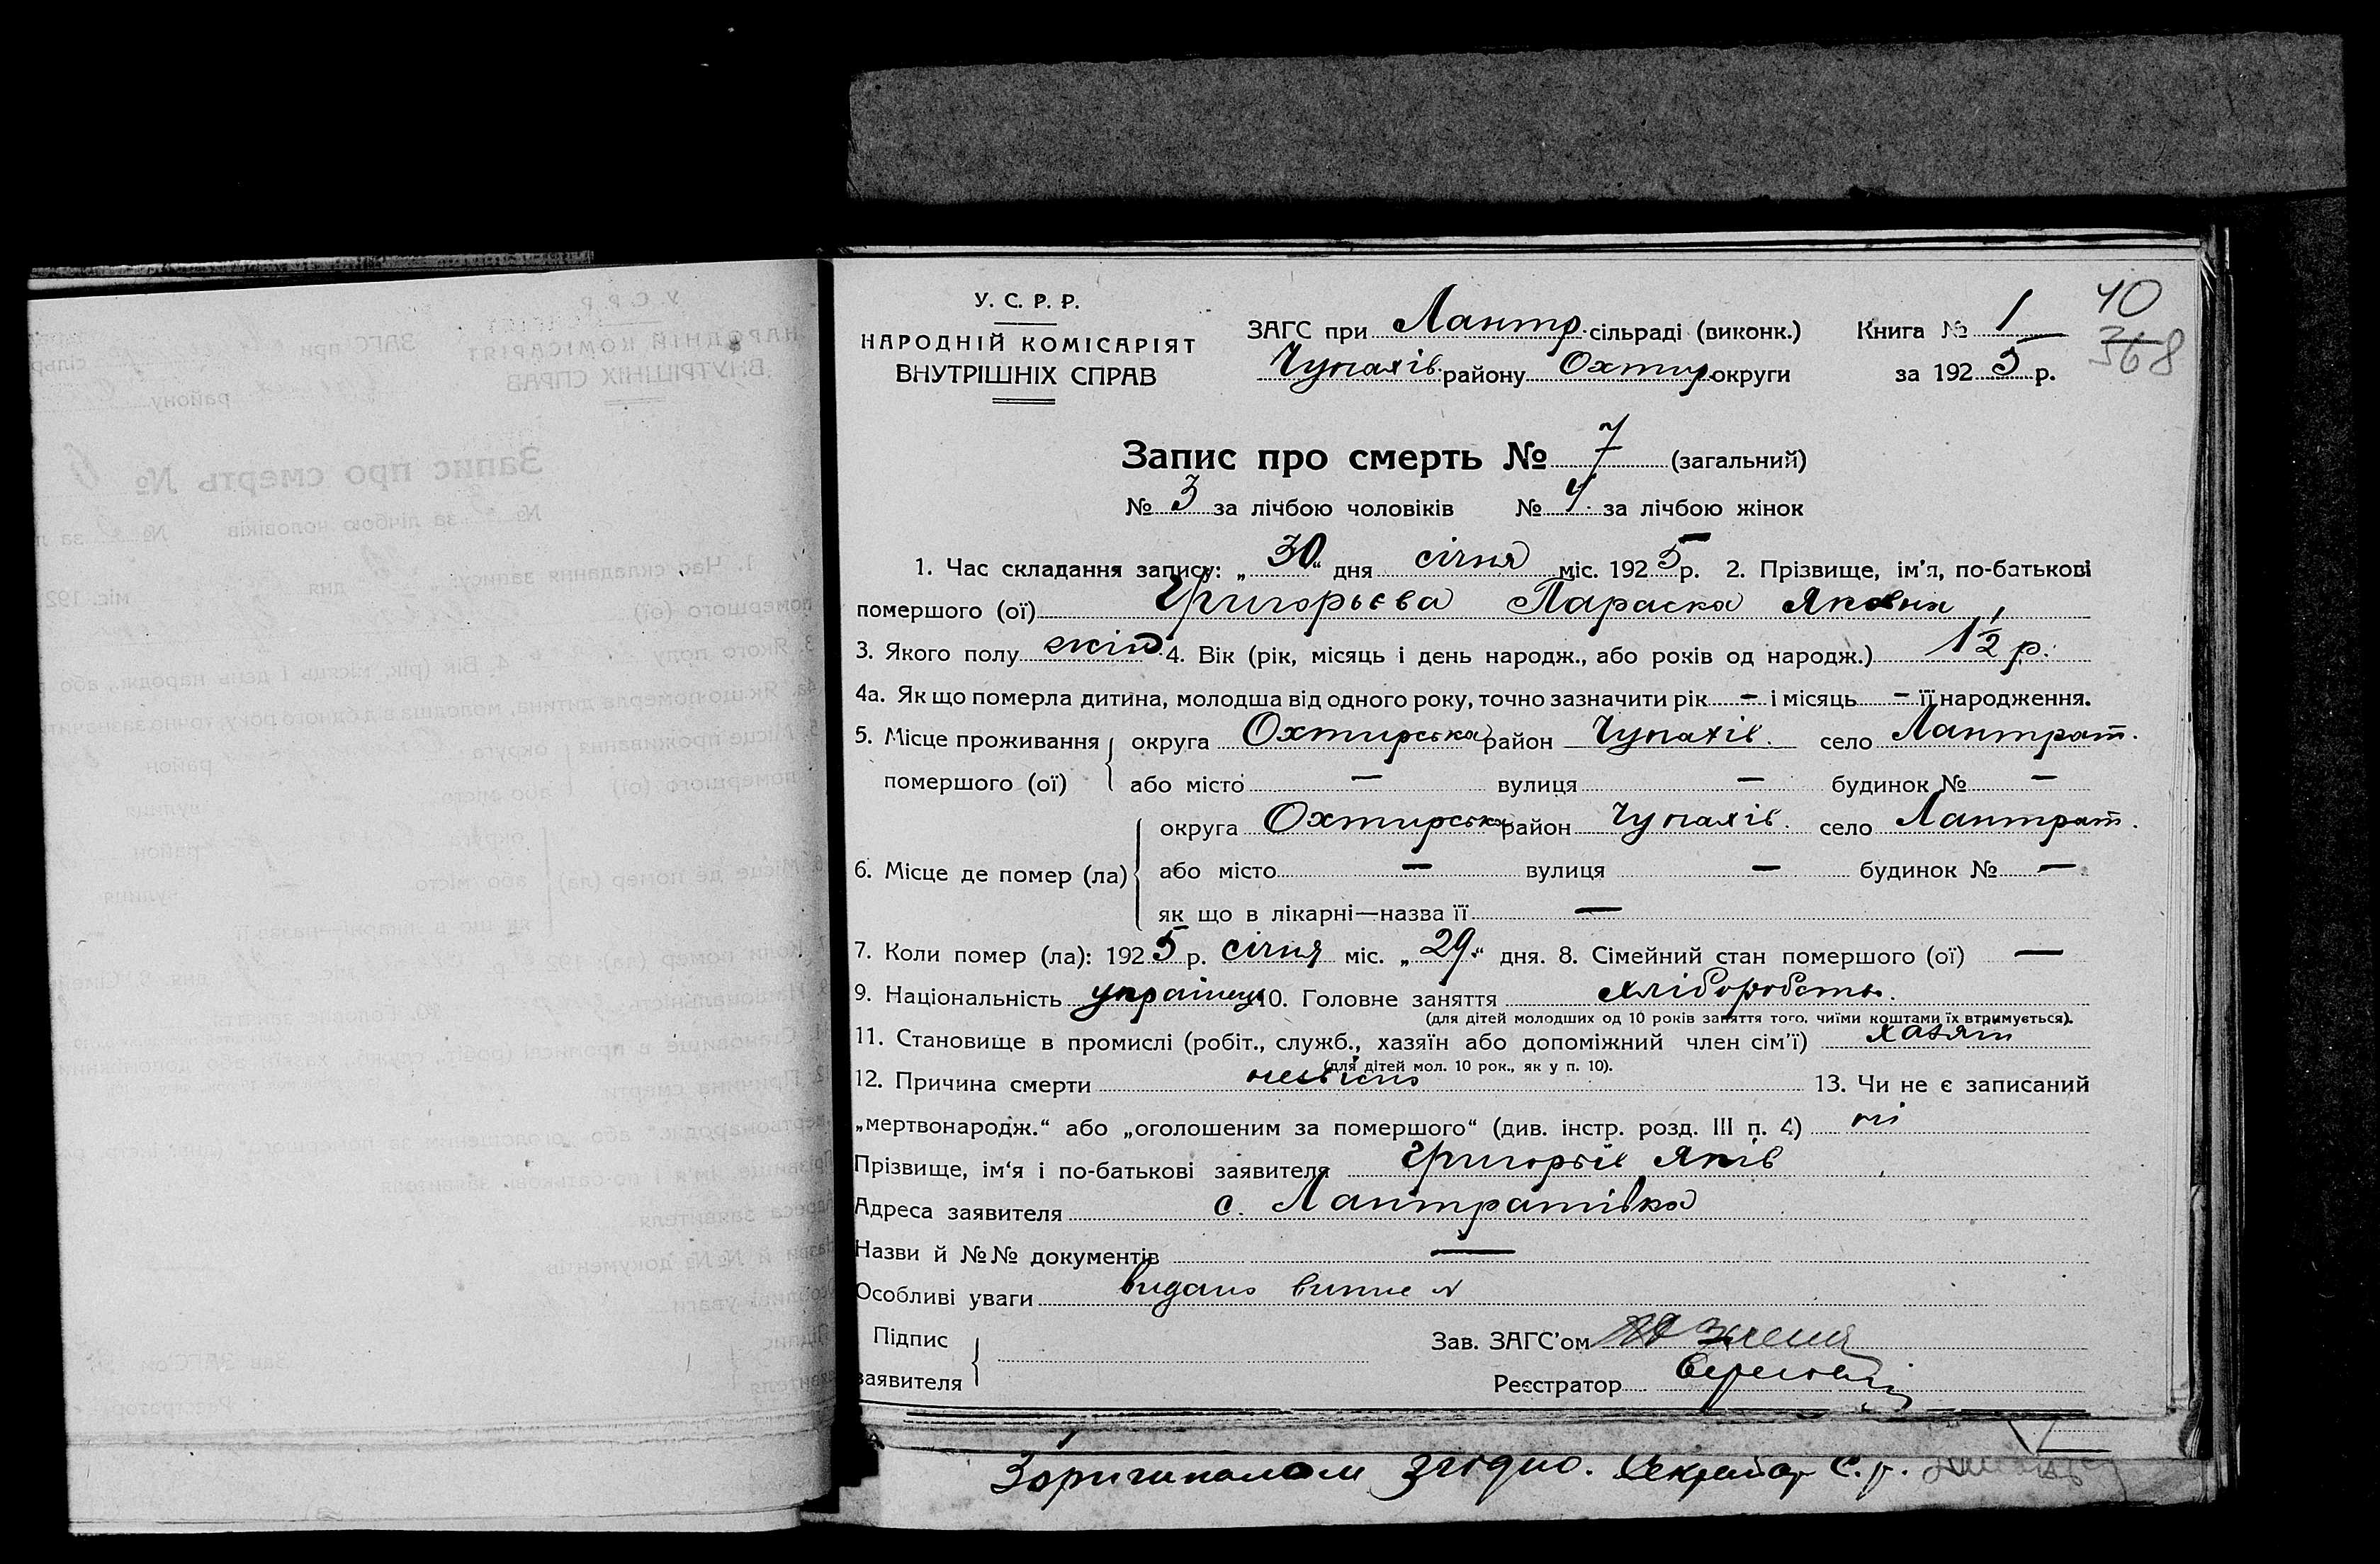 У. С. Р. Р.
НАРОДНІЙ КОМІСАРІЯТ
ВНУТРІШНІХ СПРАВ
ЗАГС при Лантр. сільраді (виконк.)
Чупахів. району Охтир. округи
Книга № 1
за 1925 р.
40
368
Запис про смерть № 7 (загальний)
№ 3 за лічбою чоловіків № 4. за лічбою жінок
1. Час складання запису: „30“ дня січня міс. 1925 р. 2. Прізвище, ім'я, по-батькові
помершого (ої) Григорьєва Параска Яковна
3. Якого полу жін. 4. Вік (рік, місяць і день народж., або років од народж.) 1 1/2 р.
4а. Як що померла дитина, молодша від одного року, точно зазначити рік — і місяць — її народження.
5. Місце проживання округа Охтирська район Чупахів. село Лантрат.
помершого (ої) або місто — вулиця — будинок № —
округа Охтирська район Чупахів. село Лантрат.
6. Місце де помер (ла) або місто — вулиця — будинок № —
як що в лікарні—назва її —
7. Коли помер (ла): 1925 р. січня міс. „29“ дня. 8. Сімейний стан помершого (ої) —
9. Національність українець 10. Головне заняття
(для дітей молодших од 10 років заняття того, чиїми коштами їх втримується).
11. Становище в промислі (робіт., служб., хазяїн або допоміжний член сім'ї) хазяїн
(для дітей мол. 10 рок., як у п. 10).
12. Причина смерти 13. Чи не є записаний
„мертвонародж.“ або „оголошеним за помершого“ (див. інстр. розд. III п. 4) ні
Прізвище, ім'я і по-батькові заявителя Григорьїв Яків
Адреса заявителя с. Лантратівка
Назви й №№ документів —
Особливі уваги видано
Підпис
заявителя
Зав. ЗАГС'ом
Реєстратор
З оригиналом згідно. Секретар С. р.